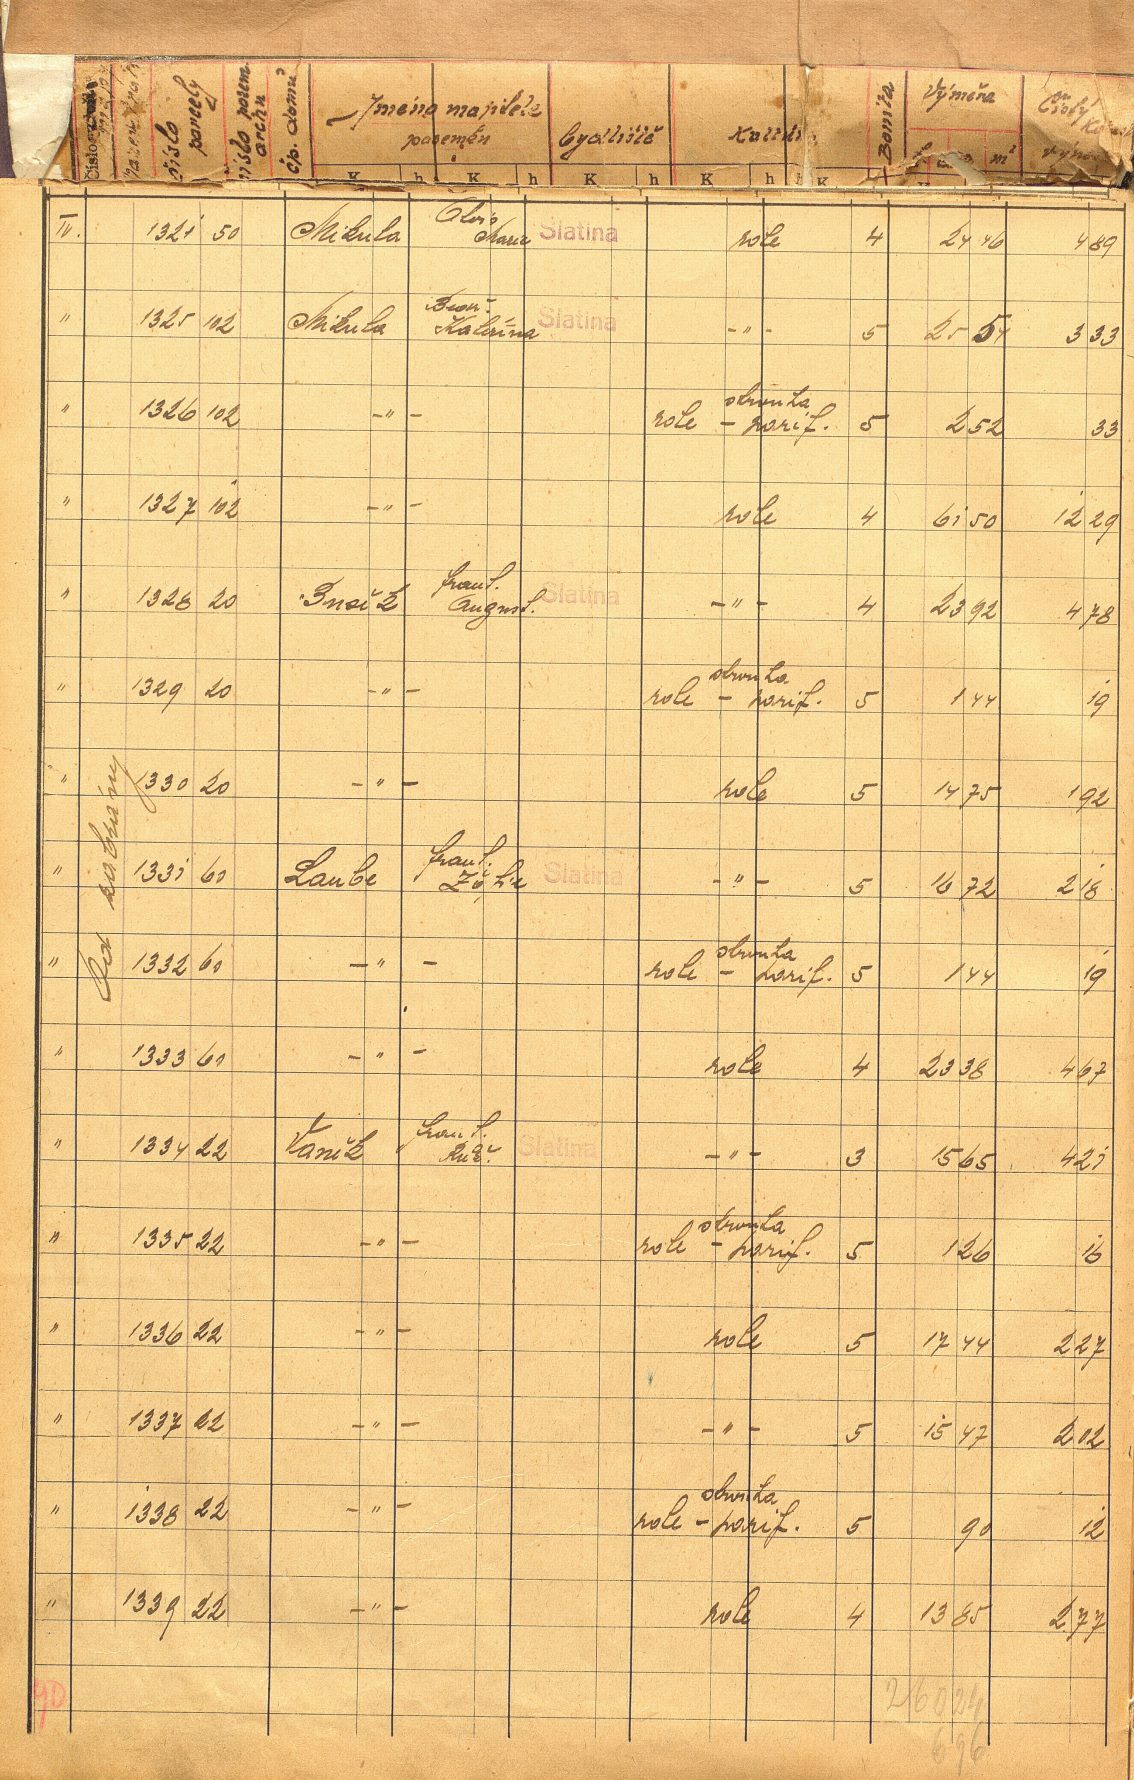 Číslo mapy
číslo parcely
číslo pozem. archu
čp. domu
Jméno majitele pozemku
Bydliště
Kultura
Bonita
Výměra
m²
Čistý
K h K h K h K h h K
IV. 1321 50 Mikula Alois Marie Slatina role 4 24 46 4 89
" 1325 102 Mikula Kateřina Slatina -"- 5 25 54 3 33
" 1326 102 -"- role - parif. 5 2 52 33
" 1327 102 -"- role 4 61 50 12 29
" 1328 20 frant. August. Slatina -"- 4 23 92 4 78
" 1329 20 -"- role - parif. 5 1 44 19
" 1330 20 -"- role 5 14 75 1 92
" 1331 60 Laube frant. Žofie Slatina -"- 5 16 72 2 18
" 1332 60 -"- role - parif. 5 1 44 19
" 1333 60 -"- role 4 23 38 4 67
" 1334 22 Vaněk frant. Růž. Slatina -"- 3 15 65 4 21
" 1335 22 -"- role - parif. 5 1 26 16
" 1336 22 -"- role 5 17 44 2 27
" 1337 22 -"- -"- 5 15 47 2 02
" 1338 22 -"- role - parif. 5 90 12
" 1339 22 -"- role 4 13 85 2 77
90